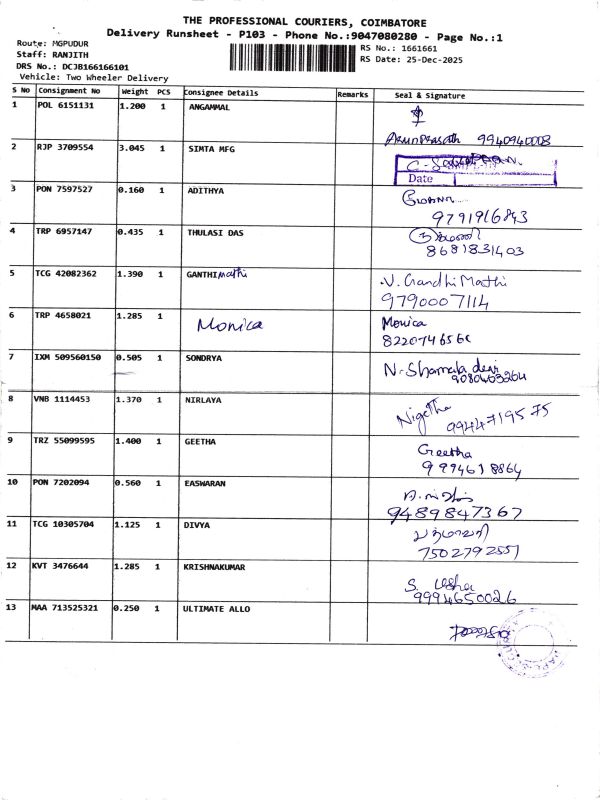 THE PROFESSIONAL COURIERS, COIMBATORE
Delivery Runsheet - P103 - Phone No.:9047080280 - Page No.:1
Route: MGPUDUR
Staff: RANJITH
DRS No.: DCJB166166101
Vehicle: Two Wheeler Delivery
RS No.: 1661661
RS Date: 25-Dec-2025
S No Consignment No Weight PCS Consignee Details Remarks Seal & Signature
1 POL 6151131 1.200 1 ANGAMMAL
Arunprasath 9940940008
2 RJP 3709554 3.045 1 SIMTA MFG
Date
3 PON 7597527 0.160 1 ADITHYA
9791916843
4 TRP 6957147 0.435 1 THULASI DAS
8681831403
5 TCG 42082362 1.390 1 GANTHImathi
V. Gandhi Mathi
9790007114
6 TRP 4658021 1.285 1 Monica
Monica
7 IXM 509560150 0.505 1 SONDRYA
N. Shamala devi
9080403264
8 VNB 1114453 1.370 1 NIRLAYA
Nigetha
9944719575
9 TRZ 55099595 1.400 1 GEETHA
Geetha
9994618864
10 PON 7202094 0.560 1 EASWARAN
9489847367
11 TCG 10305704 1.125 1 DIVYA
பத்மாவதி
7502792551
12 KVT 3476644 1.285 1 KRISHNAKUMAR
S. Usha
9994650026
13 MAA 713525321 0.250 1 ULTIMATE ALLO